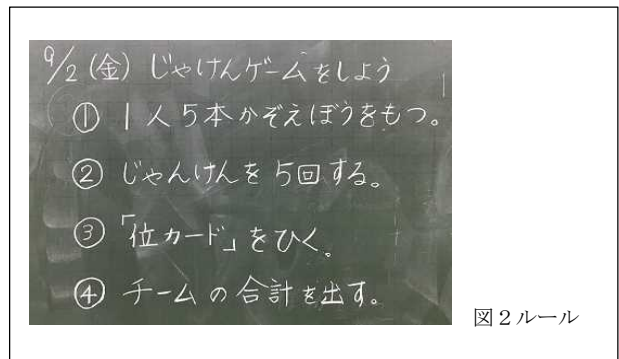 9/2 (金) じゃけんゲームをしよう
① 1人5本かぞえぼうをもつ。
② じゃんけんを5回する。
③ 「位カード」をひく。
④ チームの合計を出す。
図2ルール